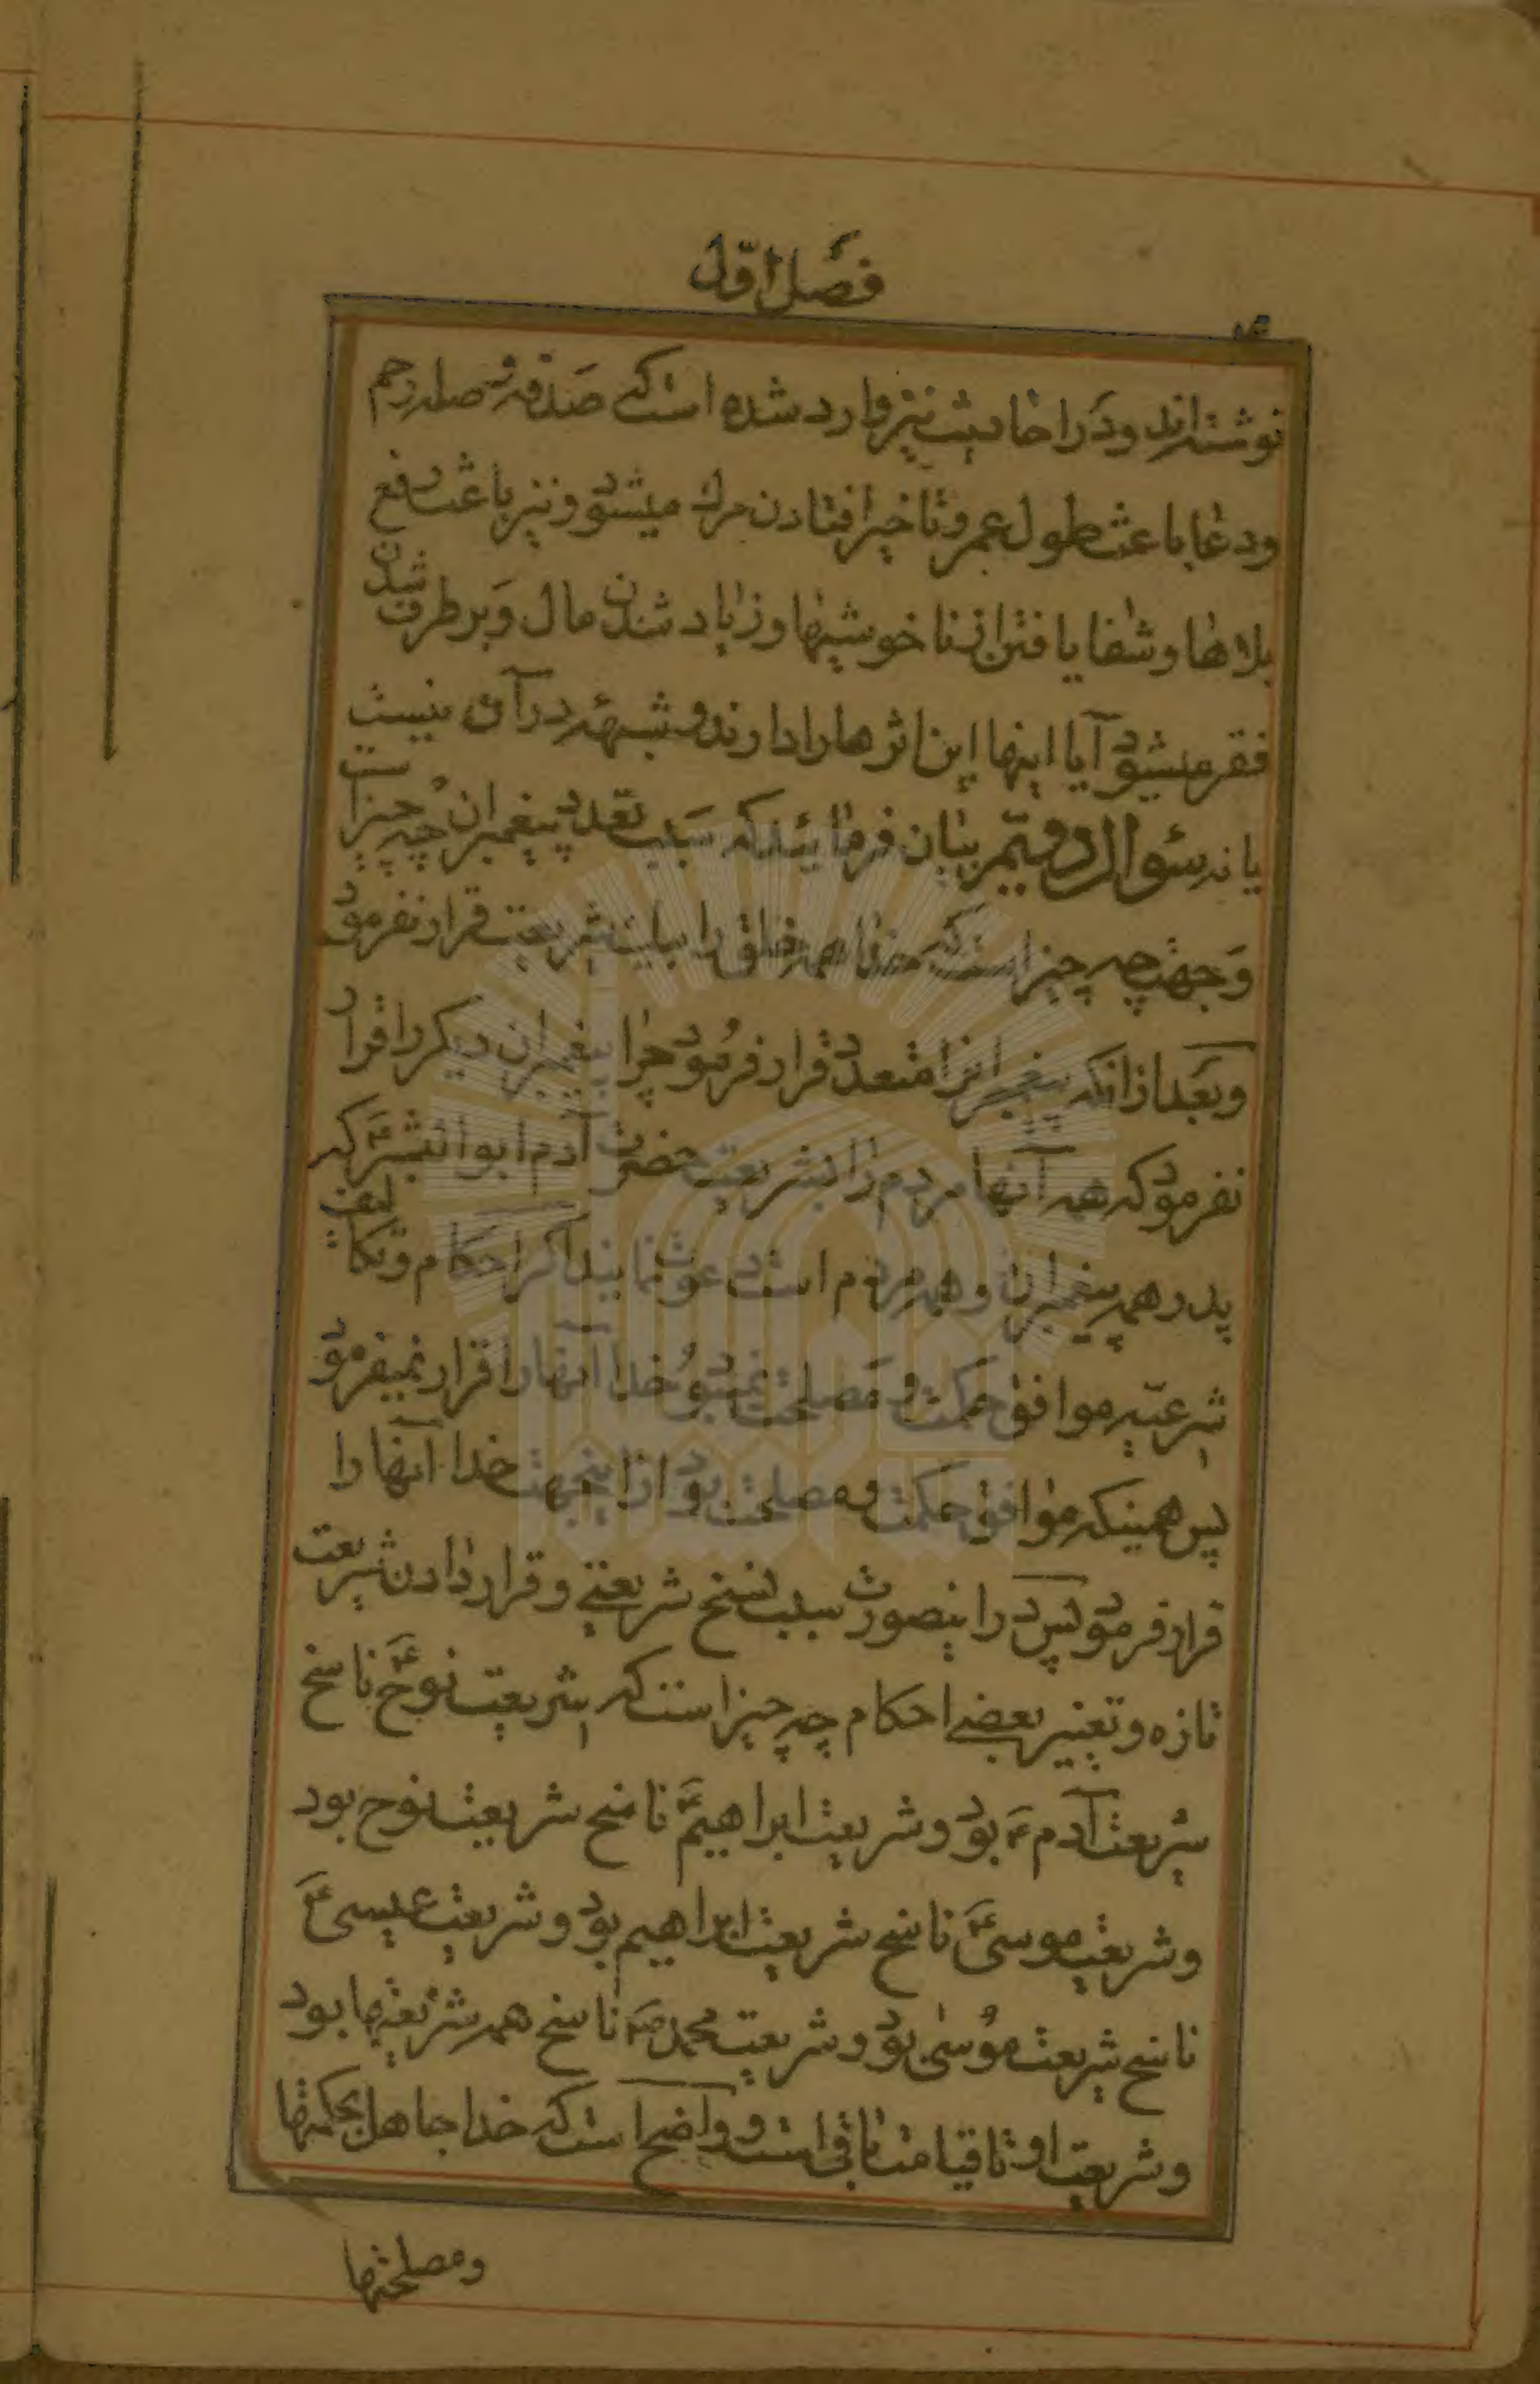 فصل اول
نوشته‌اند و در احادیث نیز وارد شده است که صدقه و صله رحم
و دعا باعث طول عمر و تاخیر افتادن مرگ میشود و نیز باعث دفع
بلاها و شفا یافتن از ناخوشیها و زیاد شدن مال و برطرف شدن
فقر میشود آیا اینها این اثرها را دارند و شبهه در آن نیست
یا نه سئوال دویّم بیان فرمائید که سبب تعدد پیغمبران چه چیز است
و جهت چه چیز است که خدا همه خلق را بیک شریعت قرار نفرمود
و بعد از آنکه پیغمبرانرا متعدد قرار فرمود چرا پیغمبران دیگر را قرار
نفرمود که همه آنها مردم را بشریعت حضرت آدم ابوالبشرؑ که
پدر همه پیغمبران و همه مردم است دعوت نمایند اگر احکام و تکالیف
شرعیّه موافق حکمت و مصلحت نمیبود خدا آنها را قرار نمیفرمود
پس همینکه موافق حکمت و مصلحت بود از اینجهت خدا آنها را
قرار فرمود پس در اینصورت سبب نسخ شریعتی و قرار دادن شریعت
تازه و تغییر بعضی احکام چه چیز است که شریعت نوحؑ ناسخ
شریعت آدمؑ بود و شریعت ابراهیمؑ ناسخ شریعت نوح بود
و شریعت موسیؑ ناسخ شریعت ابراهیم بود و شریعت عیسیؑ
ناسخ شریعت موسی بود و شریعت محمدؐ ناسخ همه شریعتها بود
و شریعت او تا قیامت باقی است و واضح است که خدا جاهل بحکمتها
و مصلحتها